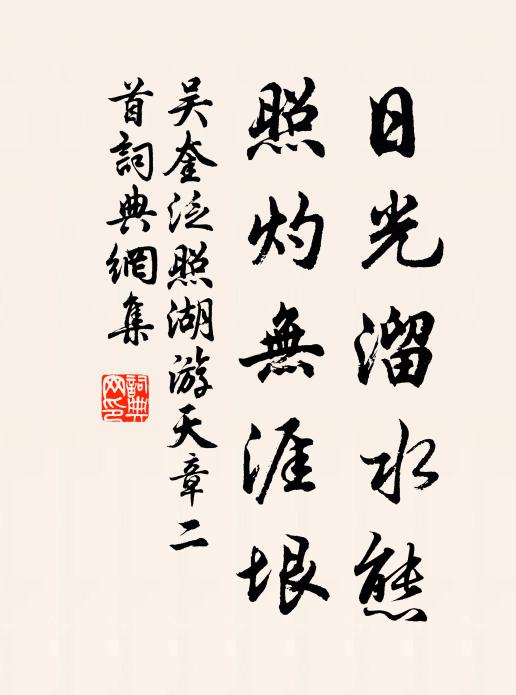 日光溜水態
照灼無涯垠
吳奎泛照湖游天章二
首詞典網集
詞典
网印